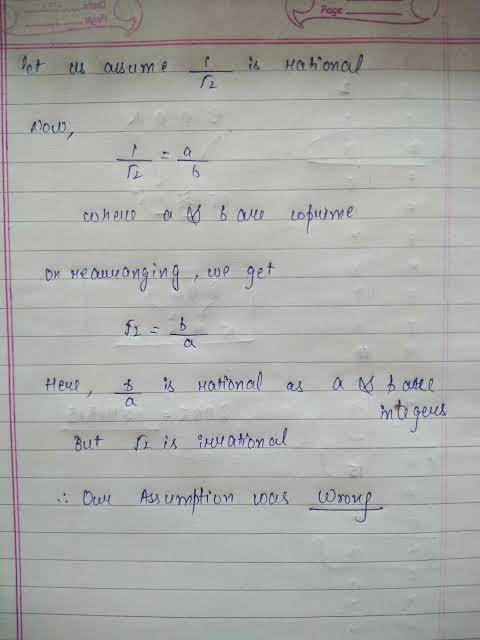 Page
let us assume 1/√2 is rational
Now,
1/√2 = a/b
where a & b are coprime
on rearranging, we get
√2 = b/a
Here, b/a is rational as a & b are
integers
But √2 is irrational
∴ Our Assumption was Wrong